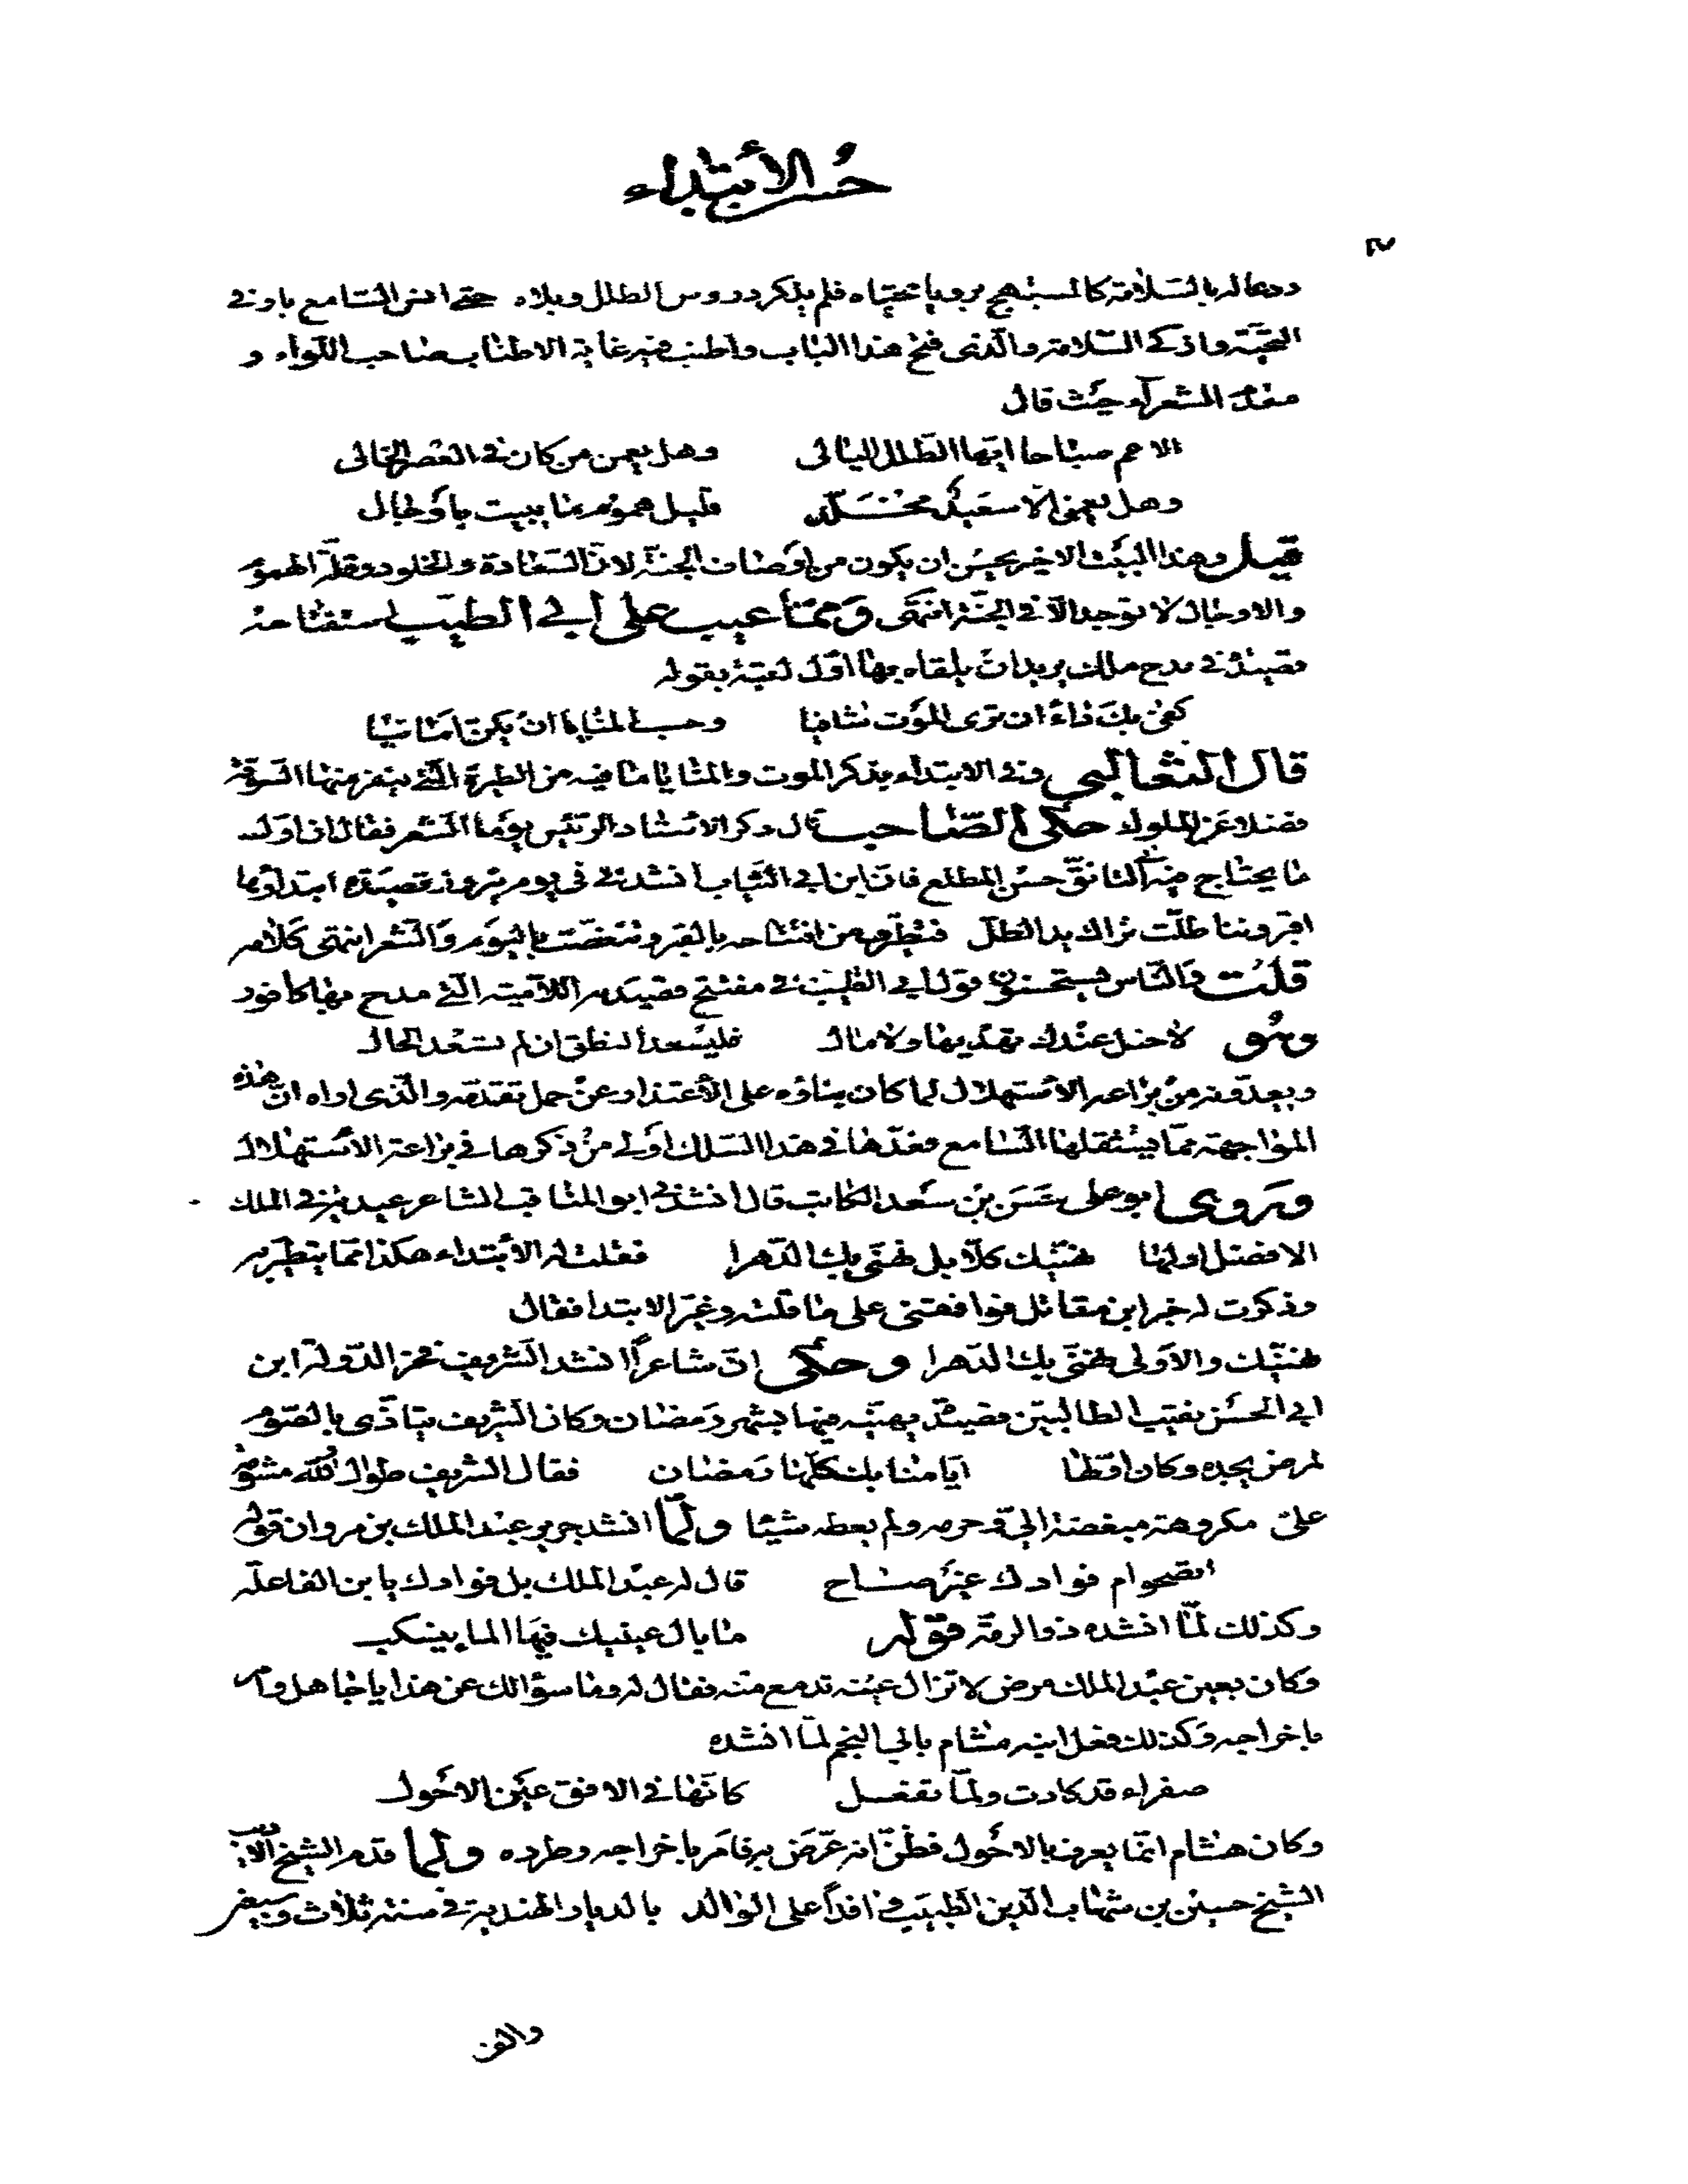 حُسن الأبتداء
ودعا له بالسلامة كالمستبهج برؤياه محيّاه فلم يذكر دروس الطلل وبلاه حتى انس السامع باوفى
التحيّة واذكى السّلامة والّذى فتح هذا الباب واطنب فيه غاية الاطناب صاحب اللّواء و
مقدّم الشعرآء حيث قال
الا عم صباحا ايّها الطّلل البالى وهل يعمن من كان فى العُصر الخالى
وهل يعمن الّا سعيدٌ مخـلّد قليل هموم ما يبيت باوجال
قيل وهذا البيت الاخير يحسن ان يكون من اوصاف الجنّة لانّ السّعادة والخلود وقلّة الهموم
والاوجال لا توجد الّا فى الجنّة انتهى وَممّا عيب على ابى الطيّب استفتاحه
قصيدة فى مدح ملك يريد ان يلقاه بها اوّل لقية بقوله
كفى بك داءً ان ترى الموت شافيا وحسب المنايا ان يكنّ امانيا
قال الثعالبى وفى الابتداء بذكر الموت والمنايا ما فيه من الطيرة الّتى ينفر منها السّوقة
فضلا عن الملوك حكى الصّاحب قال ذكر الاستاذ الرّئيس يوما الشعر فقال ان اوّل
ما يحتاج فيه الى التانّق حسن المطلع فانّ ابن ابى الشّباب انشدنى فى يوم نيروز قصيدة ابتداؤها
اقبر وما طلّت ثراك يد الطلّ فتطيّرت من افتتاحه بالقبر وتنغّصت باليوم وَالشعر انتهى كلامه
قلت وَالنّاس يستحسنون قول ابى الطّيّب فى مفتتح قصيدته اللّاميّة الّتى مدح بها كافور
وَهُو لا خيل عندك تهديها ولا مال فليُسعد النطق ان لم تسعد الحال
ويعدّونه من براعة الاستهلال لما كان بناؤه على الأعتذار عن حمل تقدّمه والّذى اراه انّ هذه
المواجهة ممّا يستثقلها السّامع فعدّها فى هذا السّلك اولى من ذكرها فى براعة الاستهلال
وَروى ابو على حَسَن بن سَعد الكاتب قال انشدنى ابو المثاقب الشاعر عيديّة فى الملك
الافضل اولها نهنّيك كلّا بل نهنّى بك الدّهرا فقلت له الأبتداء هكذا ممّا يتطيّر به
وذكرت له خبر ابن مقاتل فوافقنى على ما قلته وغيّر الابتدا فقال
نهنّيك والاولى نهنّى بك الدّهرا وحكى انّ شاعراً انشد الشريف فخر الدّولة ابن
ابى الحسَن نقيب الطالبيّين قصيدة يهنّيه فيها بشهر رَمضان وكان الشريف يتاذّى بالصّوم
لمرض يجده وكان اوّلها ايّامنا بك كلّها رَمضان فقال الشريف طوال والله مشومة
علىّ مكروهة مبغضة الىّ وحرمه ولم يعطه شيئا ولمّا انشد جرير عبد الملك بن مروان قوله
اتصحو ام فوادك غير صـاح قال له عبد الملك بل فوادك يا بن الفاعله
وكذلك لمّا انشده ذو الرمّة قوله ما بال عينيك فيها الماء ينسكب
وَكان بعين عبد الملك مرض لا تزال عينه تدمع منه فقال له وما سؤالك عن هذا يا جاهل وامر
باخراجه وَكذلك فعل ابنه هشام بابى النجم لمّا انشده
صفراء قد كادت ولمّا تفعـل كانّها فى الافق عين الاحول
وكان هشام انّما يعرف بالاحول فظنّ انه عرّض به فامَر باخراجه وطرده ولما قدم الشيخ الاديب
الشيخ حسين بن شهاب الدّين الطبيب وافداً على الوالد بالديار الهنديه فى سنة ثلاث وسبعين
والف